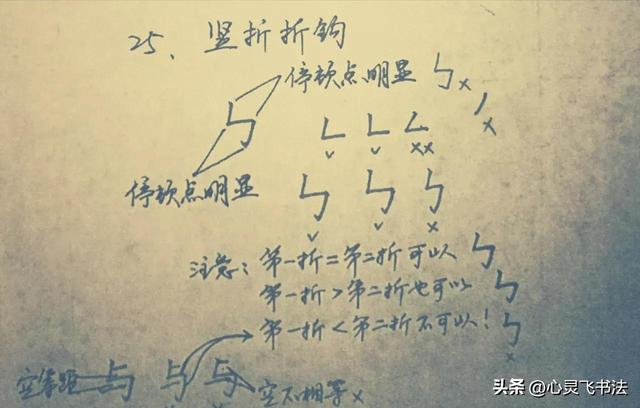 25、竖折折钩
停顿点明显
停顿点明显
注意：第一折=第二折可以
第一折>第二折也可以
第一折<第二折不可以！
空等距 与 与 与 空不相等×
头条 @心灵飞书法